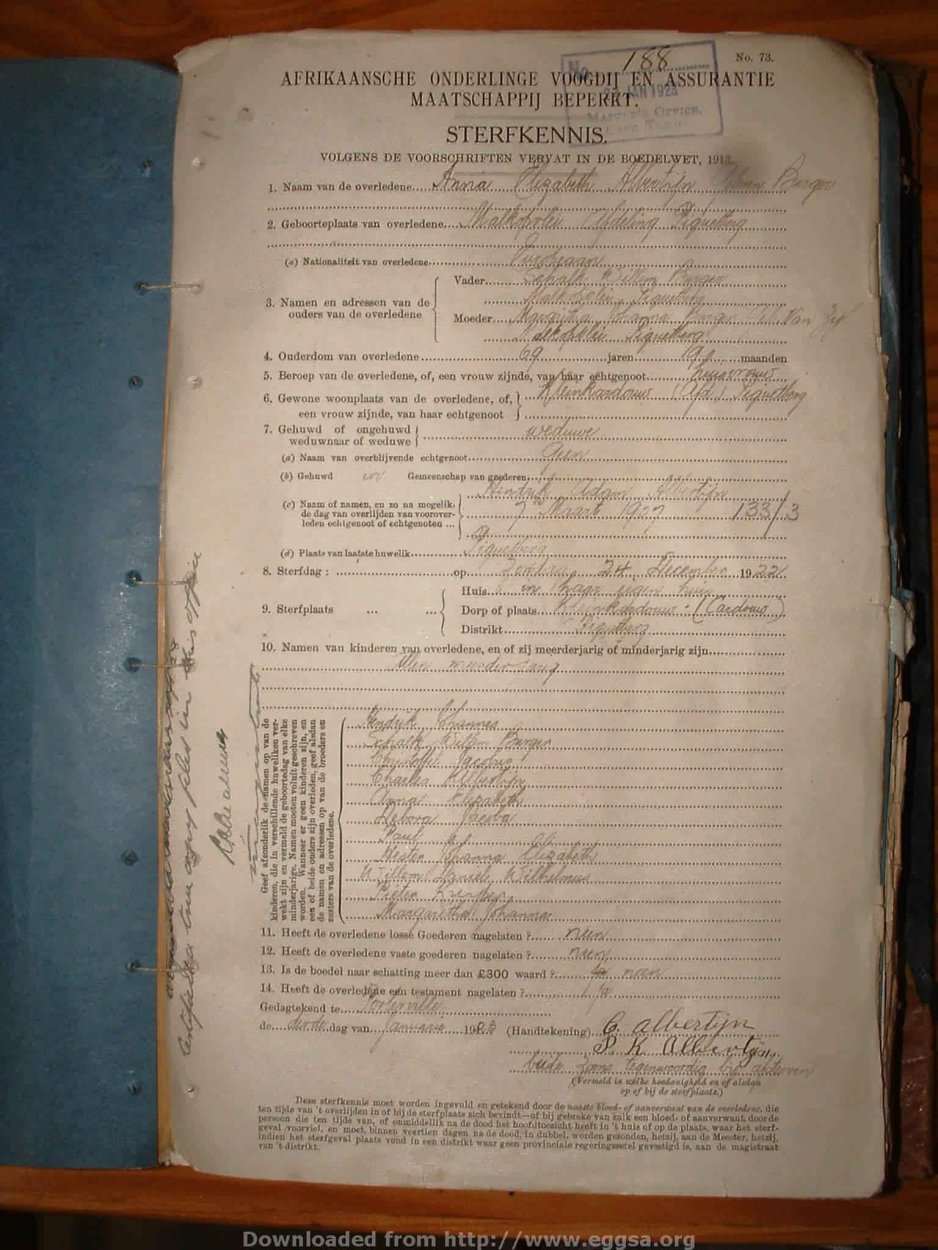 188
No. 73.
No.
JAN 1923
MASTER'S OFFICE,
AFRIKAANSCHE ONDERLINGE VOOGDIJ EN ASSURANTIE
MAATSCHAPPIJ BEPERKT.
STERFKENNIS.
VOLGENS DE VOORSCHRIFTEN VERVAT IN DE BOEDELWET, 1913.
1. Naam van de overledene Anna Elizabeth Albertijn Geboren Burger
2. Geboorteplaats van overledene Afdeling Piquetberg
(a) Nationaliteit van overledene
3. Namen en adressen van de ouders van de overledene
Vader Schalk Willem Burger
Piquetberg
Moeder Johanna Burger Geb. Van Zyl
Piquetberg
4. Ouderdom van overledene 69 jaren maanden
5. Beroep van de overledene, of, een vrouw zijnde, van haar echtgenoot huisvrouw
6. Gewone woonplaats van de overledene, of, een vrouw zijnde, van haar echtgenoot Kleinkardouw (Afd.) Piquetberg
7. Gehuwd of ongehuwd weduwnaar of weduwe weduwe
(a) Naam van overblijvende echtgenoot Geen
(b) Gehuwd in Gemeenschap van goederen
(c) Naam of namen, en zo na mogelik de dag van overlijden van vooroverleden echtgenoot of echtgenoten
Hendrik Adam Albertijn
7 Maart 133/3
(d) Plaats van laatste huwelik Piquetberg
8. Sterfdag : op Zondag 24 December 1922
9. Sterfplaats
Huis in haar eigen huis
Dorp of plaats Kleinkardouw (Cardouw)
Distrikt Piquetberg
10. Namen van kinderen van overledene, en of zij meerderjarig of minderjarig zijn
Allen meerderjarig
Geef afzonderlik de namen op van de kinderen, die in verschillende huweliken verwekt zijn en vermeld de geboortedag van elke minderjarige. Namen moeten voluit geschreven worden. Wanneer er geen kinderen zijn, en een of beide ouders zijn overleden, geef alsdan de namen en adressen op van de broeders en zusters van de overledene.
Hendrik Johannes
Schalk Willem Burger
Christoffel Jacobus
Charles Albertijn
Anna Elizabeth
Debora Jacoba
Paul
Hester Johanna Elizabeth
Willem Daniel Wilhelmus
Pieter
Margaretha Johanna
11. Heeft de overledene losse Goederen nagelaten ? neen
12. Heeft de overledene vaste goederen nagelaten ? neen
13. Is de boedel naar schatting meer dan £300 waard ? neen
14. Heeft de overledene een testament nagelaten ? Ja
Gedagtekend te Porterville
de derde dag van Januarie 1923 (Handtekening) C. Albertijn
P. K. Albertijn
beide zoons tegenwoordig bij sterven
(Vermeld in welke hoedanigheid en of alsdan
op of bij de sterfplaats.)
Deze sterfkennis moet worden ingevuld en getekend door de naaste bloed- of aanverwant van de overledene, die
ten tijde van 't overlijden in of bij de sterfplaats zich bevindt—of bij gebreke van zulk een bloed- of aanverwant, door de
persoon die ten tijde van, of onmiddellik na de dood het hoofdtoezicht heeft in 't huis of op de plaats, waar het sterf-
geval voorviel, en moet, binnen veertien dagen na de dood, in dubbel, worden gezonden, hetzij, aan de Meester, hetzij,
indien het sterfgeval plaats vond in een distrikt waar geen provinciale regeringszetel gevestigd is, aan de magistraat
van 't distrikt.
Certified a true copy filed in this office
Downloaded from http://www.eggsa.org